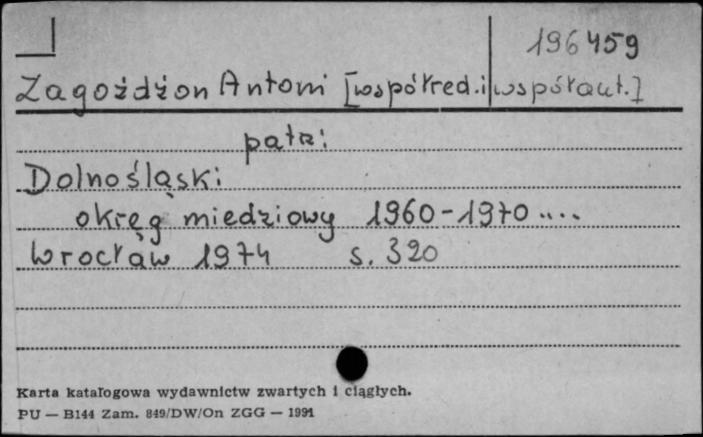 196459
Zagożdżon Antoni [współred. i współaut.]
patrz:
Dolnośląski
okręg miedziowy 1960-1970....
Wrocław 1974 s. 320
Karta katalogowa wydawnictw zwartych i ciągłych.
PU — B144 Zam. 849/DW/On ZGG — 1991